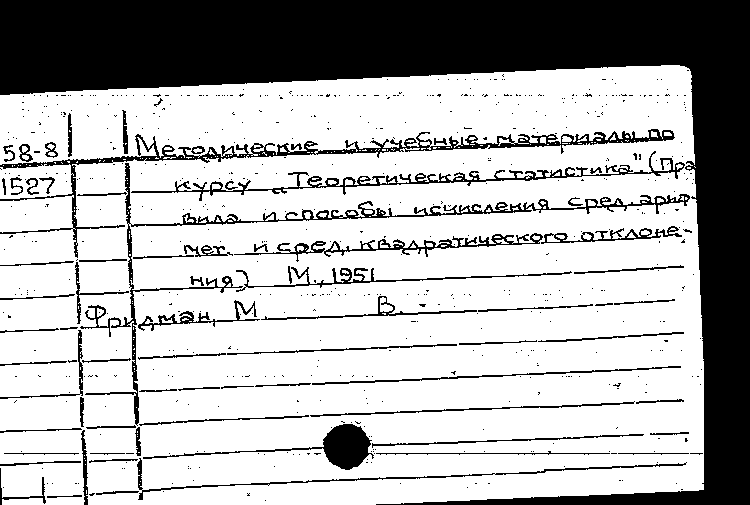 58-8 Методические и учебные материалы по
1527 курсу „Теоретическая статистика". (Пра-
вила и способы исчисления сред. ариф-
мет. и сред. квадратического отклоне-
ния) М., 1951
Фридман, М. В.